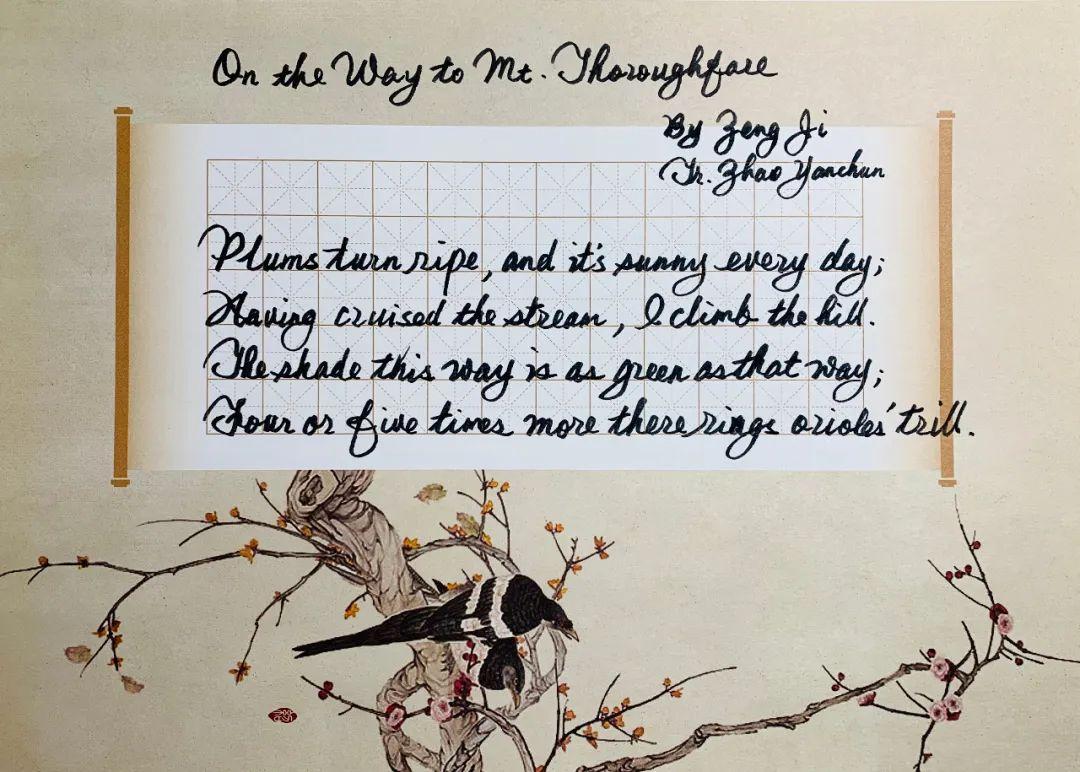 On the Way to Mt. Thoroughfare
By Zeng Ji
Tr. Zhao Yanchun
Plums turn ripe, and it's sunny every day;
Having cruised the stream, I climb the hill.
The shade this way is as green as that way;
Four or five times more there rings orioles' trill.